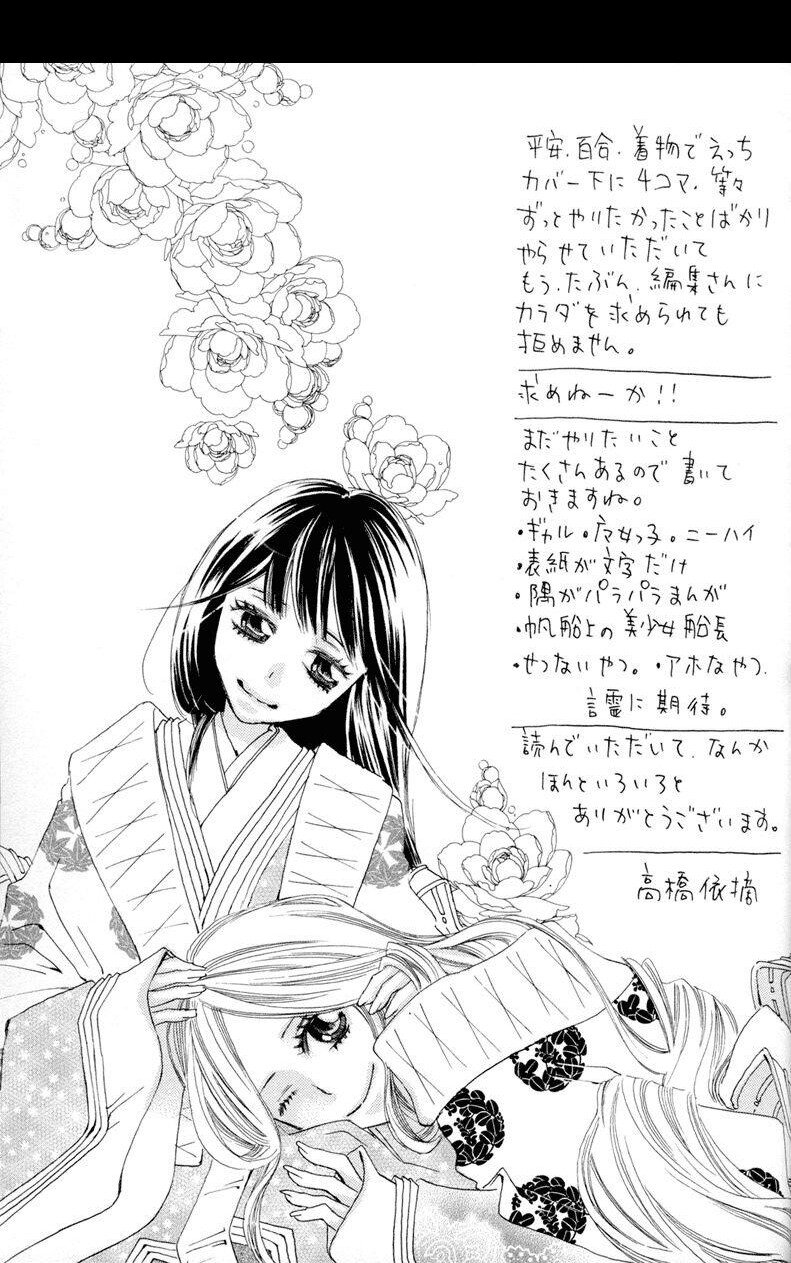 平安、百合、着物でえっち
カバー下に4コマ、等々
ずっとやりたかったことばかり
やらせていただいて
もう、たぶん、編集さんに
カラダを求められても
拒めません。
求めねーか!!
まだやりたいこと
たくさんあるので書いて
おきますね。
・ギャル・魔女っ子。ニーハイ
・表紙が文字だけ
・隅がパラパラまんが
・帆船上の美少女船長
・せつないやつ。・アホなやつ.
言霊に期待。
読んでいただいて、なんか
ほんといろいろと
ありがとうございます。
高橋依摘